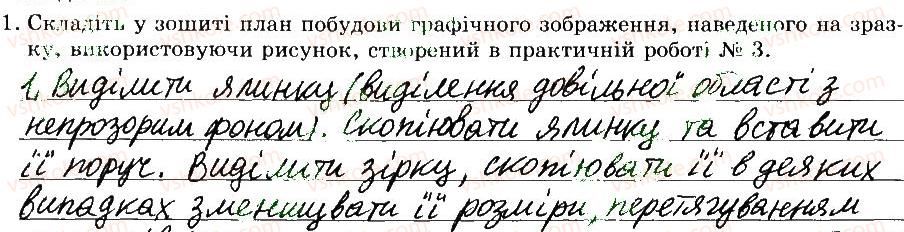 1. Складіть у зошиті план побудови графічного зображення, наведеного на зраз-
ку, використовуючи рисунок, створений в практичній роботі № 3.
1. Виділити ялинку (виділення довільної області з
непрозорим фоном). Скопіювати ялинку та вставити
її поруч. Виділити зірку, скопіювати її в деяких
випадках зменшувати її розміри, перетягуванням